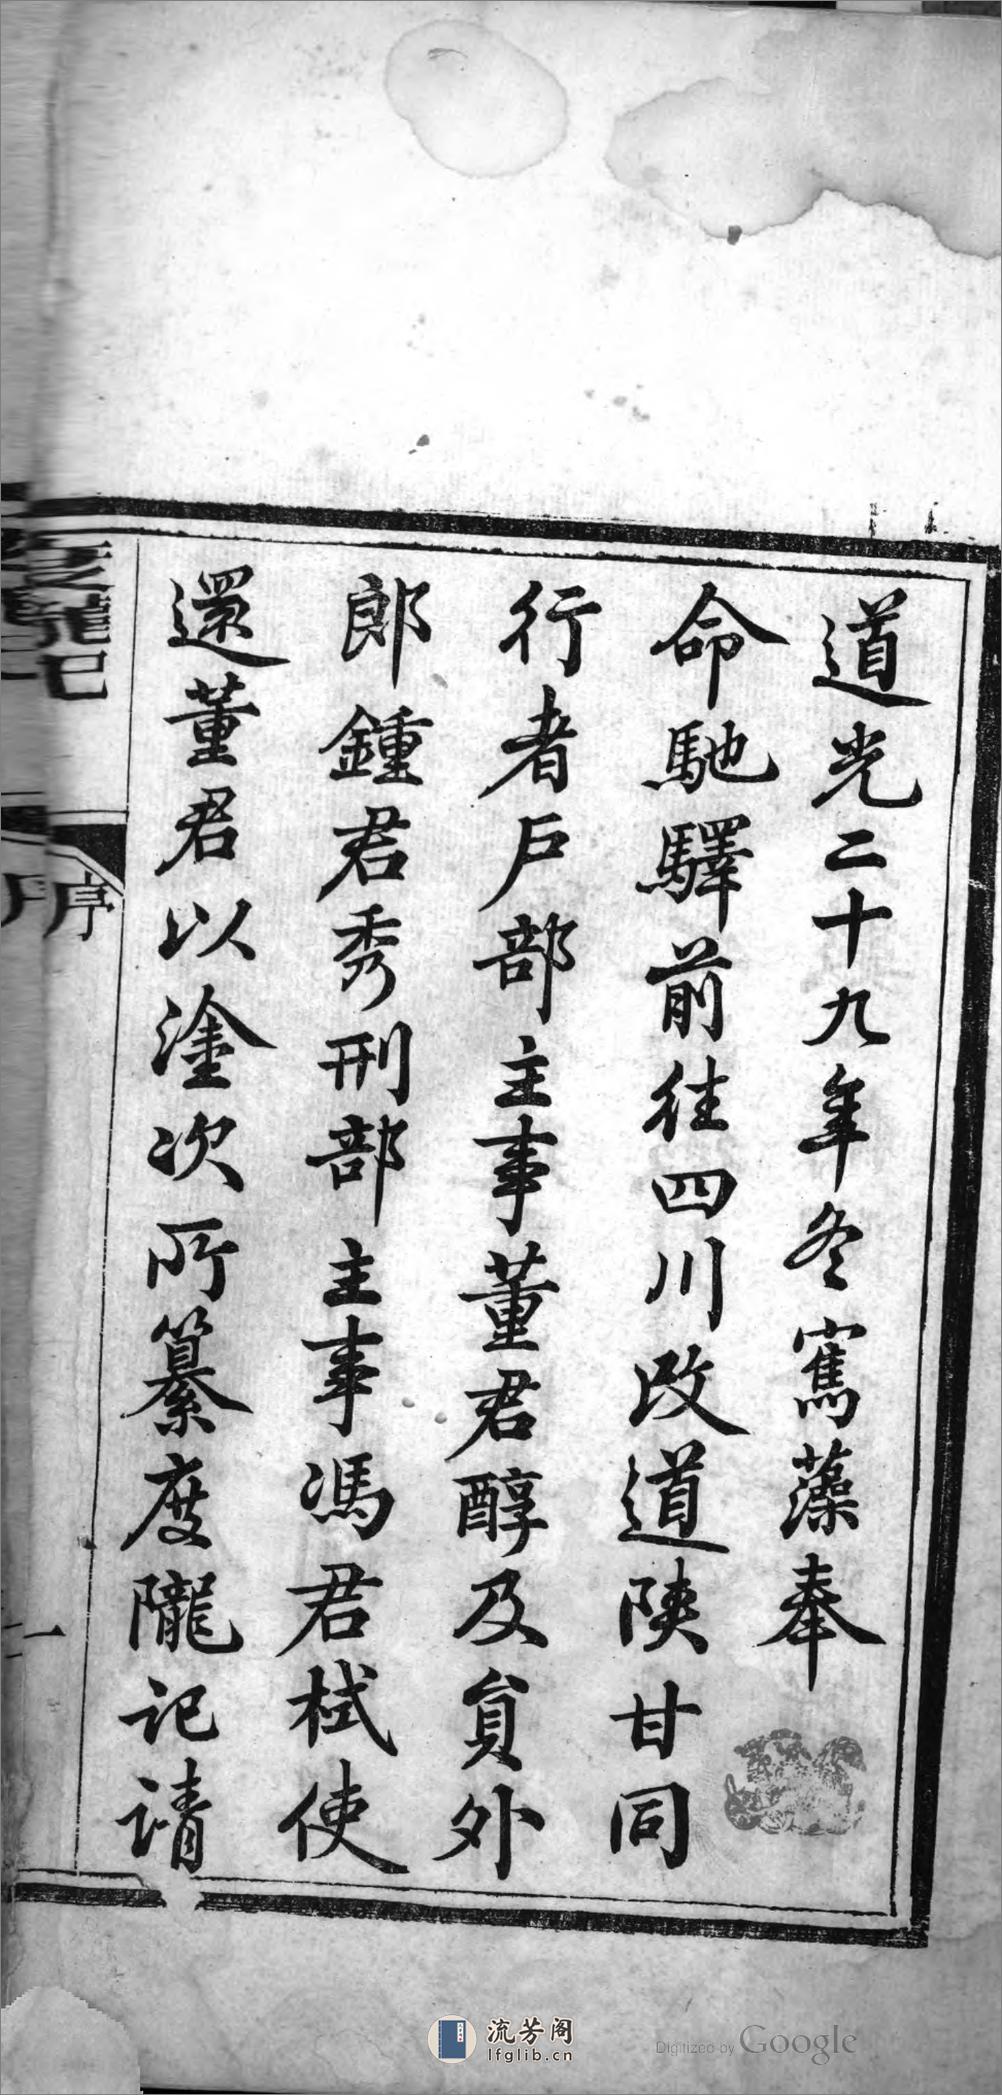 道光二十九年冬寯藻奉
命馳驛前往四川改道陕甘同
行者戶部主事董君醇及貟外
郎鍾君秀刑部主事馮君栻使
還董君以塗次所纂度隴記請
度隴記
序
一
流芳阁
lfglib.cn
Digitized by Google